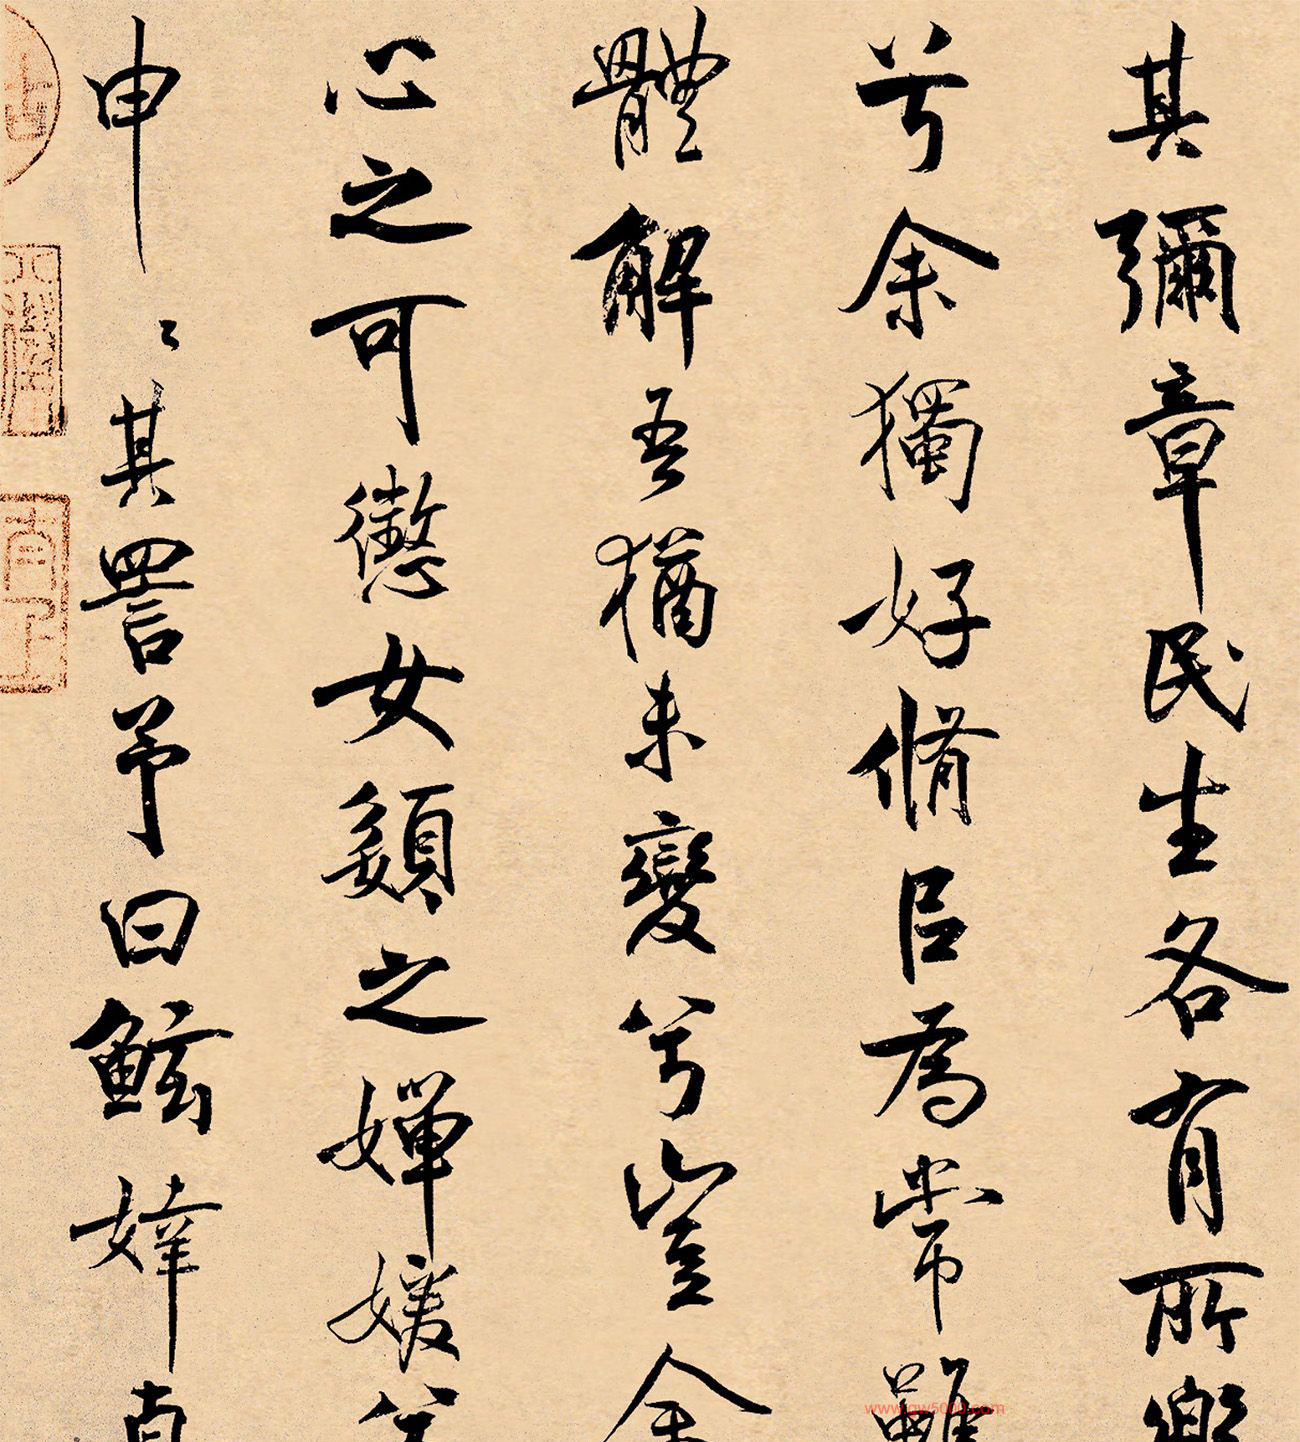 其彌章民生各有所樂
兮余獨好脩㠯為常雖
體解吾猶未變兮豈余
心之可懲女頾之嬋媛兮
申〻其詈予曰鮌婞直